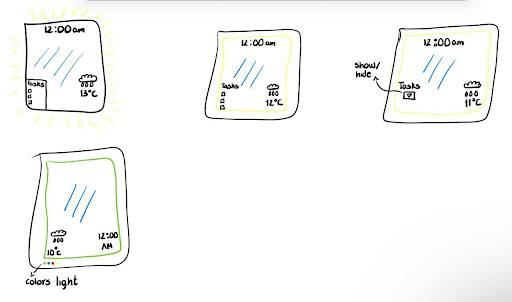 12:00am
Tasks
13°C
12:00am
Tasks
12°C
12:00am
show/
hide
Tasks
11°C
12:00
AM
10°C
colors light